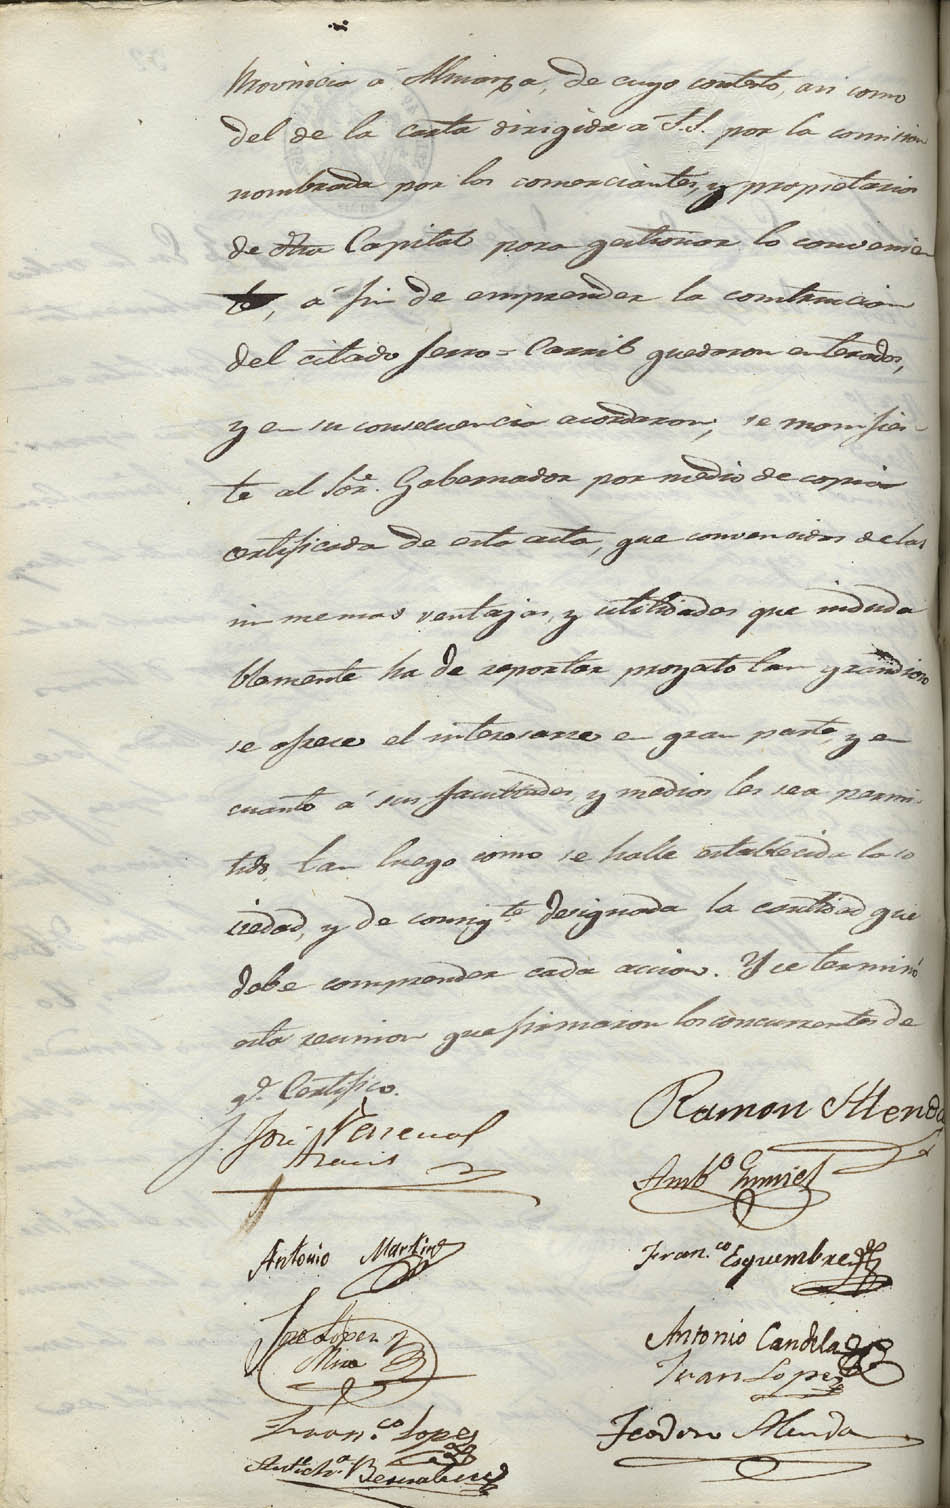 Provincia á Almansa, de cuyo contesto, asi como
del de la carta dirigida á S.S. por la comision
nombrada por los comerciantes, y propietarios
de dha Capital para gestionar lo convenien
te, á fin de emprender la construccion
del citado ferro=Carril quedaron enterados,
y en su consecuencia acordaron; se manifies
te al Sor. Gobernador por medio de copia
certificada de esta acta, que convencidos de las
inmensas ventajas, y utilidades que induda
blemente ha de reportar proyecto tan grandioso
se ofrece el interesarse en gran parte, y en
cuanto á sus facultades, y medios les sea permi
tido, tan luego como se halle establecida la so
ciedad, y de consigte. designada la cantidad que
debe comprender cada accion. Y se terminó
esta reunion que firmaron los concurrentes de
qe. Certifico.
Ramon Alenda
José Pascual
Ambo
Antonio Martinez
Franco Esquembre
José Lopez
Mira
Antonio Candela
Juan Lopez
Franco Lopez
Teodoro Alenda
Bernabeu